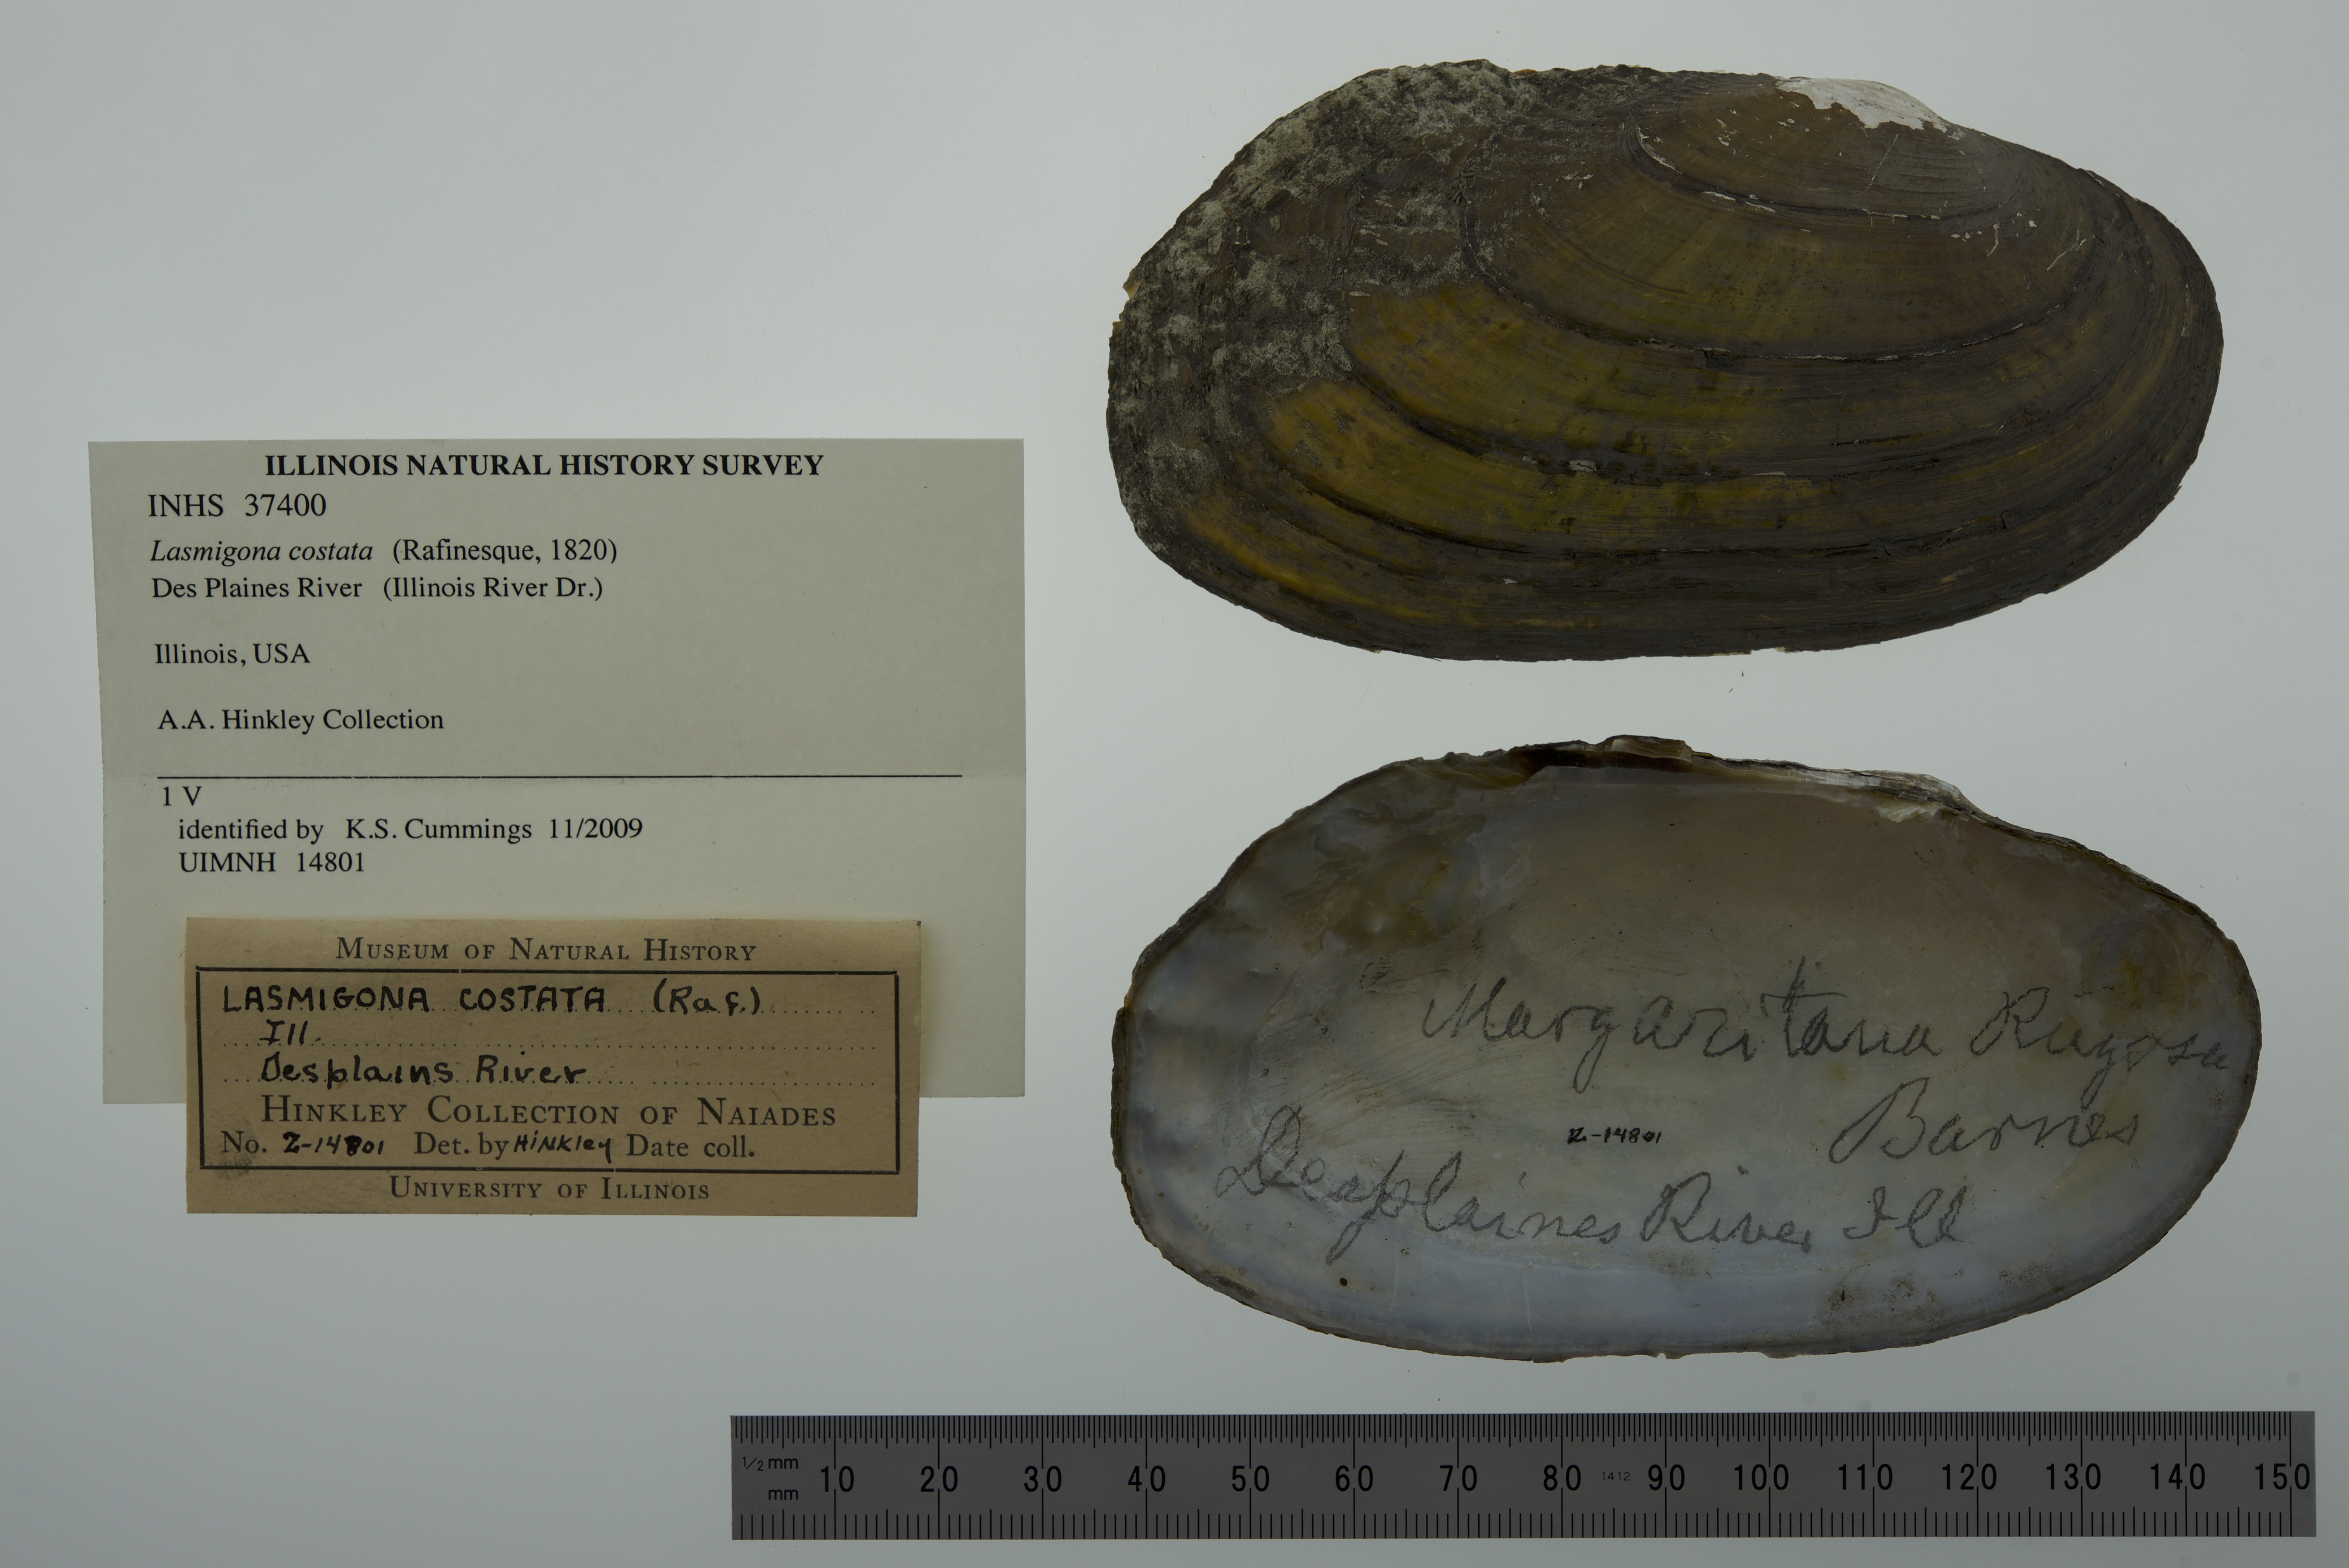 ILLINOIS NATURAL HISTORY SURVEY
INHS 37400
Lasmigona costata (Rafinesque, 1820)
Des Plaines River (Illinois River Dr.)
Illinois, USA
A.A. Hinkley Collection
1 V
identified by K.S. Cummings 11/2009
UIMNH 14801
MUSEUM OF NATURAL HISTORY
LASMIGONA COSTATA (Raf.)
Ill.
Desplains River
HINKLEY COLLECTION OF NAIADES
No. Z-14801 Det. by HINKley Date coll.
UNIVERSITY OF ILLINOIS
Margaritana Rugosa
Barnes
Z-14801
Desplaines River Ill
1/2 mm
10 20 30 40 50 60 70 80 1412 90 100 110 120 130 140 150
mm